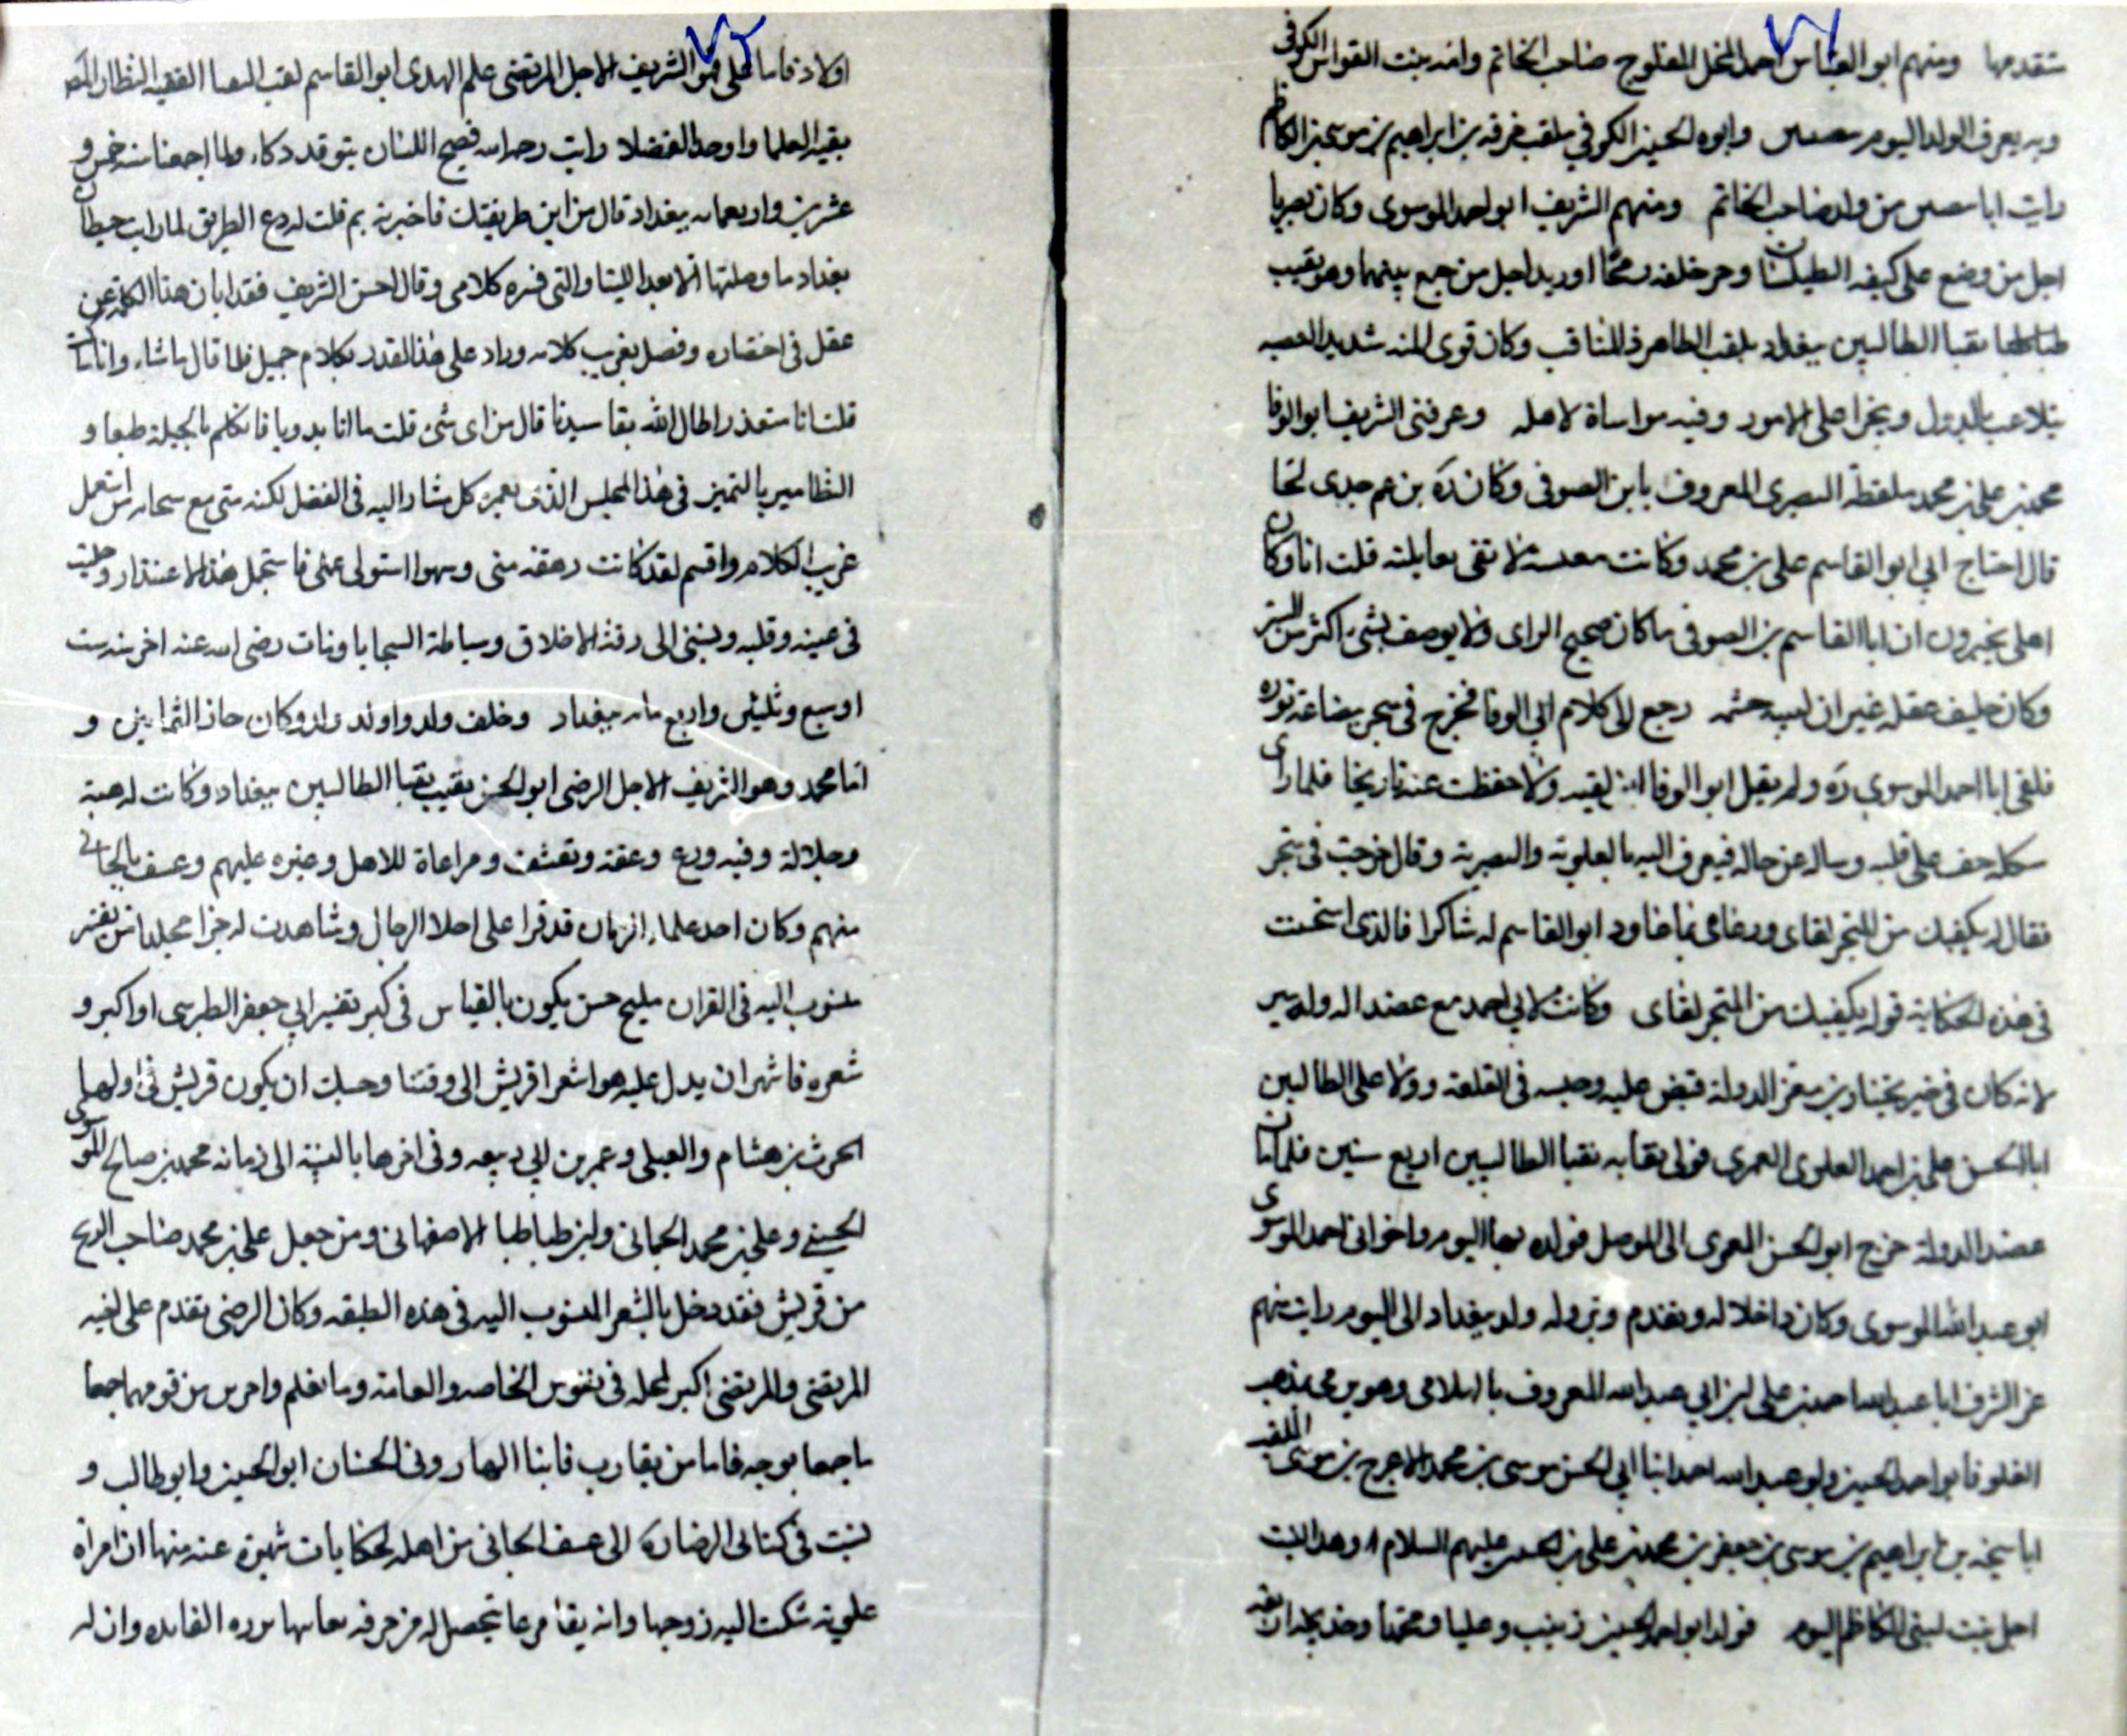 تتقدمها ومنهم ابو العباس احمد المخل المفلوج صاحب الخاتم وامه بنت القواس الكوفي
وبه يعرف الولد اليوم وابوه الحسين الكوفي يلقب بن ابراهيم بن موسى بن الكاظم
رايت ابا من ولد صاحب الخاتم ومنهم الشريف ابو احمد الموسوى وكان بصريا
اجل من وضع على كتفه الطيلسان وجر خلفه رمحا اوريد اجل من جمع بينهما وهو نقيب
نقبا الطالبيين ببغداد يلقب الطاهر ذا المناقب وكان قوى المنه شديد العصبه
يتلاعب بالدول ويتجرا على الامور وفيه مواساة لاهله وعرفنى الشريف ابو الوفا
محمد بن على بن محمد ملقطة البصرى المعروف بابن الصوفى وكان ره بن عم جدى لحا
قال احتاج ابي ابو القاسم على بن محمد وكانت معيسته لا تفى بعايلته قلت انا وكان
اهلى يخبرون ان ابا القاسم بن الصوفى ما كان صحيح الراى ولا يوصف بشى اكثر من الستر
وكان خليف عقله غير ان لبيبه حشمه رجع الى كلام ابي الوفا فخرج فى متجر ببضاعة نزره
فلقى ابا احمد الموسوي ره ولم يقل ابو الوفا اين لقيه ولا حفظت عنه تاريخا فلما راى
شكله خف على قلبه وساله عن حاله فيعرف اليه بالعلوية والبصرية وقال خرجت فى متجر
فقال له يكفيك من المتجر لقاى ابو القاسم له شاكرا فالذى استحسنت
فى هذه الحكاية قوله يكفيك من المتجر لقاى وكانت لابي احمد مع عضد الدوله سير
لانه كان فى خير بختيار بن معز الدولة فقبض عليه وحبسه فى القلعة وولا على الطالبيين
ابا الحسن على بن احمد العلوى العمرى فولى نقابه نقبا الطالبيين اربع سنين فلما مات
عضد الدولة خرج ابو الحسن العمرى الى الموصل فولده بها اليوم واخو ابى احمد الموسوى
ابو عبد الله الموسوى وكان داخلا له وتقدم ونزوله ولد ببغداد الى اليوم رايت منهم
عز الشرف ابا عبد الله احمد بن على بن ابي عبد الله المعروف وهو يرمى بمذهب
الغلو فابو احمد الحسين وابو عبد الله احمد ابنا ابي الحسن موسى بن محمد الاعرج بن موسى الملقب
ابا سبحه بن ابراهيم بن موسى بن جعفر بن محمد بن على بن الحسين عليهم السلام وهذا البيت
اجل بيت لبنى الكاظم اليوم فولد ابو احمد الحسين زينب وعليا ومحمدا وخديجه اربعه
اولاد فاما على فهو الشريف الاجل المرتضى علم الهدى ابو القاسم نقيب النقبا الفقيه النظار المصنف
بقية العلما واوحد الفضلا رايته رحمه الله فصيح اللسان يتوقد ذكاء ولما اجتمعنا سنه خمس و
عشرين واربعمايه ببغداد قال من اين طريقك فاخبرته ثم قلت له دع الطريق لما رايت حيطان
بغداد ما وصلتها الا بعد اللتيا والتى فسره كلامى وقال احسن الشريف فقد ابان هذا الكلام عن
عقل فى اختصاره وفضل بغريب كلامه وزاد على هذا القدر بكلام جميل فلما قال ما شاء وانا ساكت
قلت انا معتذر اطال الله بقا سيدنا قال من اى شى قلت ما انا بدويا فاتكلم بالجبلة طبعا و
التظاهر بالتمييز فى هذا المجلس الذى يعمره كل مشار اليه فى الفضل لكنه منى من استعمل
غريب الكلام واقسم لقد كانت رهقه منى وسهوا استولى على فاستجمل هذا الاعتذار وجليت
فى عينه وقلبه ونسبنى الى رقة الاخلاق وسباطة السجايا ومات رضى الله عنه اخر سنه ست
او سبع وثلثين واربع مايه ببغداد وخلف ولد واولد ولد وكان جاز الثمانين و
اما محمد وهو الشريف الاجل الرضى ابو الحسن نقيب نقبا الطالبيين ببغداد وكانت له هيبة
وجلالة وفيه ورع وعفة وتقشف ومراعاة للاهل وغيره عليهم وعسف بالجانى
منهم وكان احد علماء الزمان قد قرا على اجلا الرجال وشاهدت له جزا مجلدا من تفسير
منسوب اليه فى القران مليح حسن يكون بالقياس فى كبر تفسير ابي جعفر الطبرى او اكبر و
شعره فاشهر ان يدل عليه هو اشعر قريش الى وقتنا وحسبك ان يكون قريش فى اولها
الحرث بن هشام والعبلى وعمر بن ابي ربيعه وفى اخرها بالنسبة الى زمانه محمد بن صالح الموسوى
الحسنى وعلى بن محمد الحمانى وابن طباطبا الاصفهانى ومن جعل على بن محمد صاحب الزنج
من قريش فقد دخل بالشعر المنسوب اليه فى هذه الطبقه وكان الرضى تقدم على اخيه
المرتضى والمرتضى اكبر لمحله فى نفوس الخاصه والعامة وما نعلم واخرين من قومهما جمعا
ما جمعا بوجه فاما من يقارب فابنا الهارونى الحسنان ابو الحسين وابو طالب و
نسبت فى كتابى الرضا ره الى عسف الجانى من اهله لحكايات شهيرة عنه منها ان امراة
علوية شكت اليه زوجها وانه يقامر بما يتحصل له من حرفه يعانيها نزره الفايده وان له